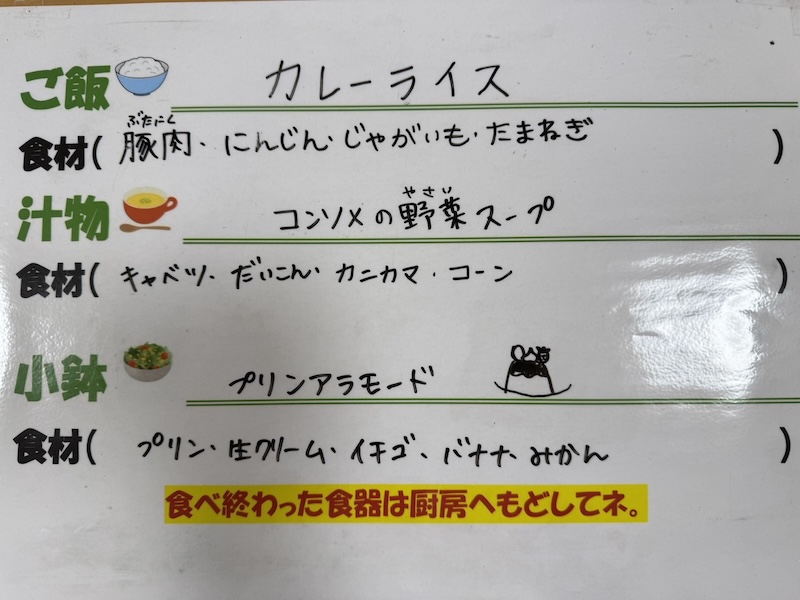 ご飯 カレーライス
ぶたにく
食材( 豚肉・にんじん・じゃがいも・たまねぎ )
やさい
汁物 コンソメの野菜スープ
食材( キャベツ・だいこん・カニカマ・コーン )
小鉢 プリンアラモード
食材( プリン・生クリーム・イチゴ、バナナ、みかん )
食べ終わった食器は厨房へもどしてネ。